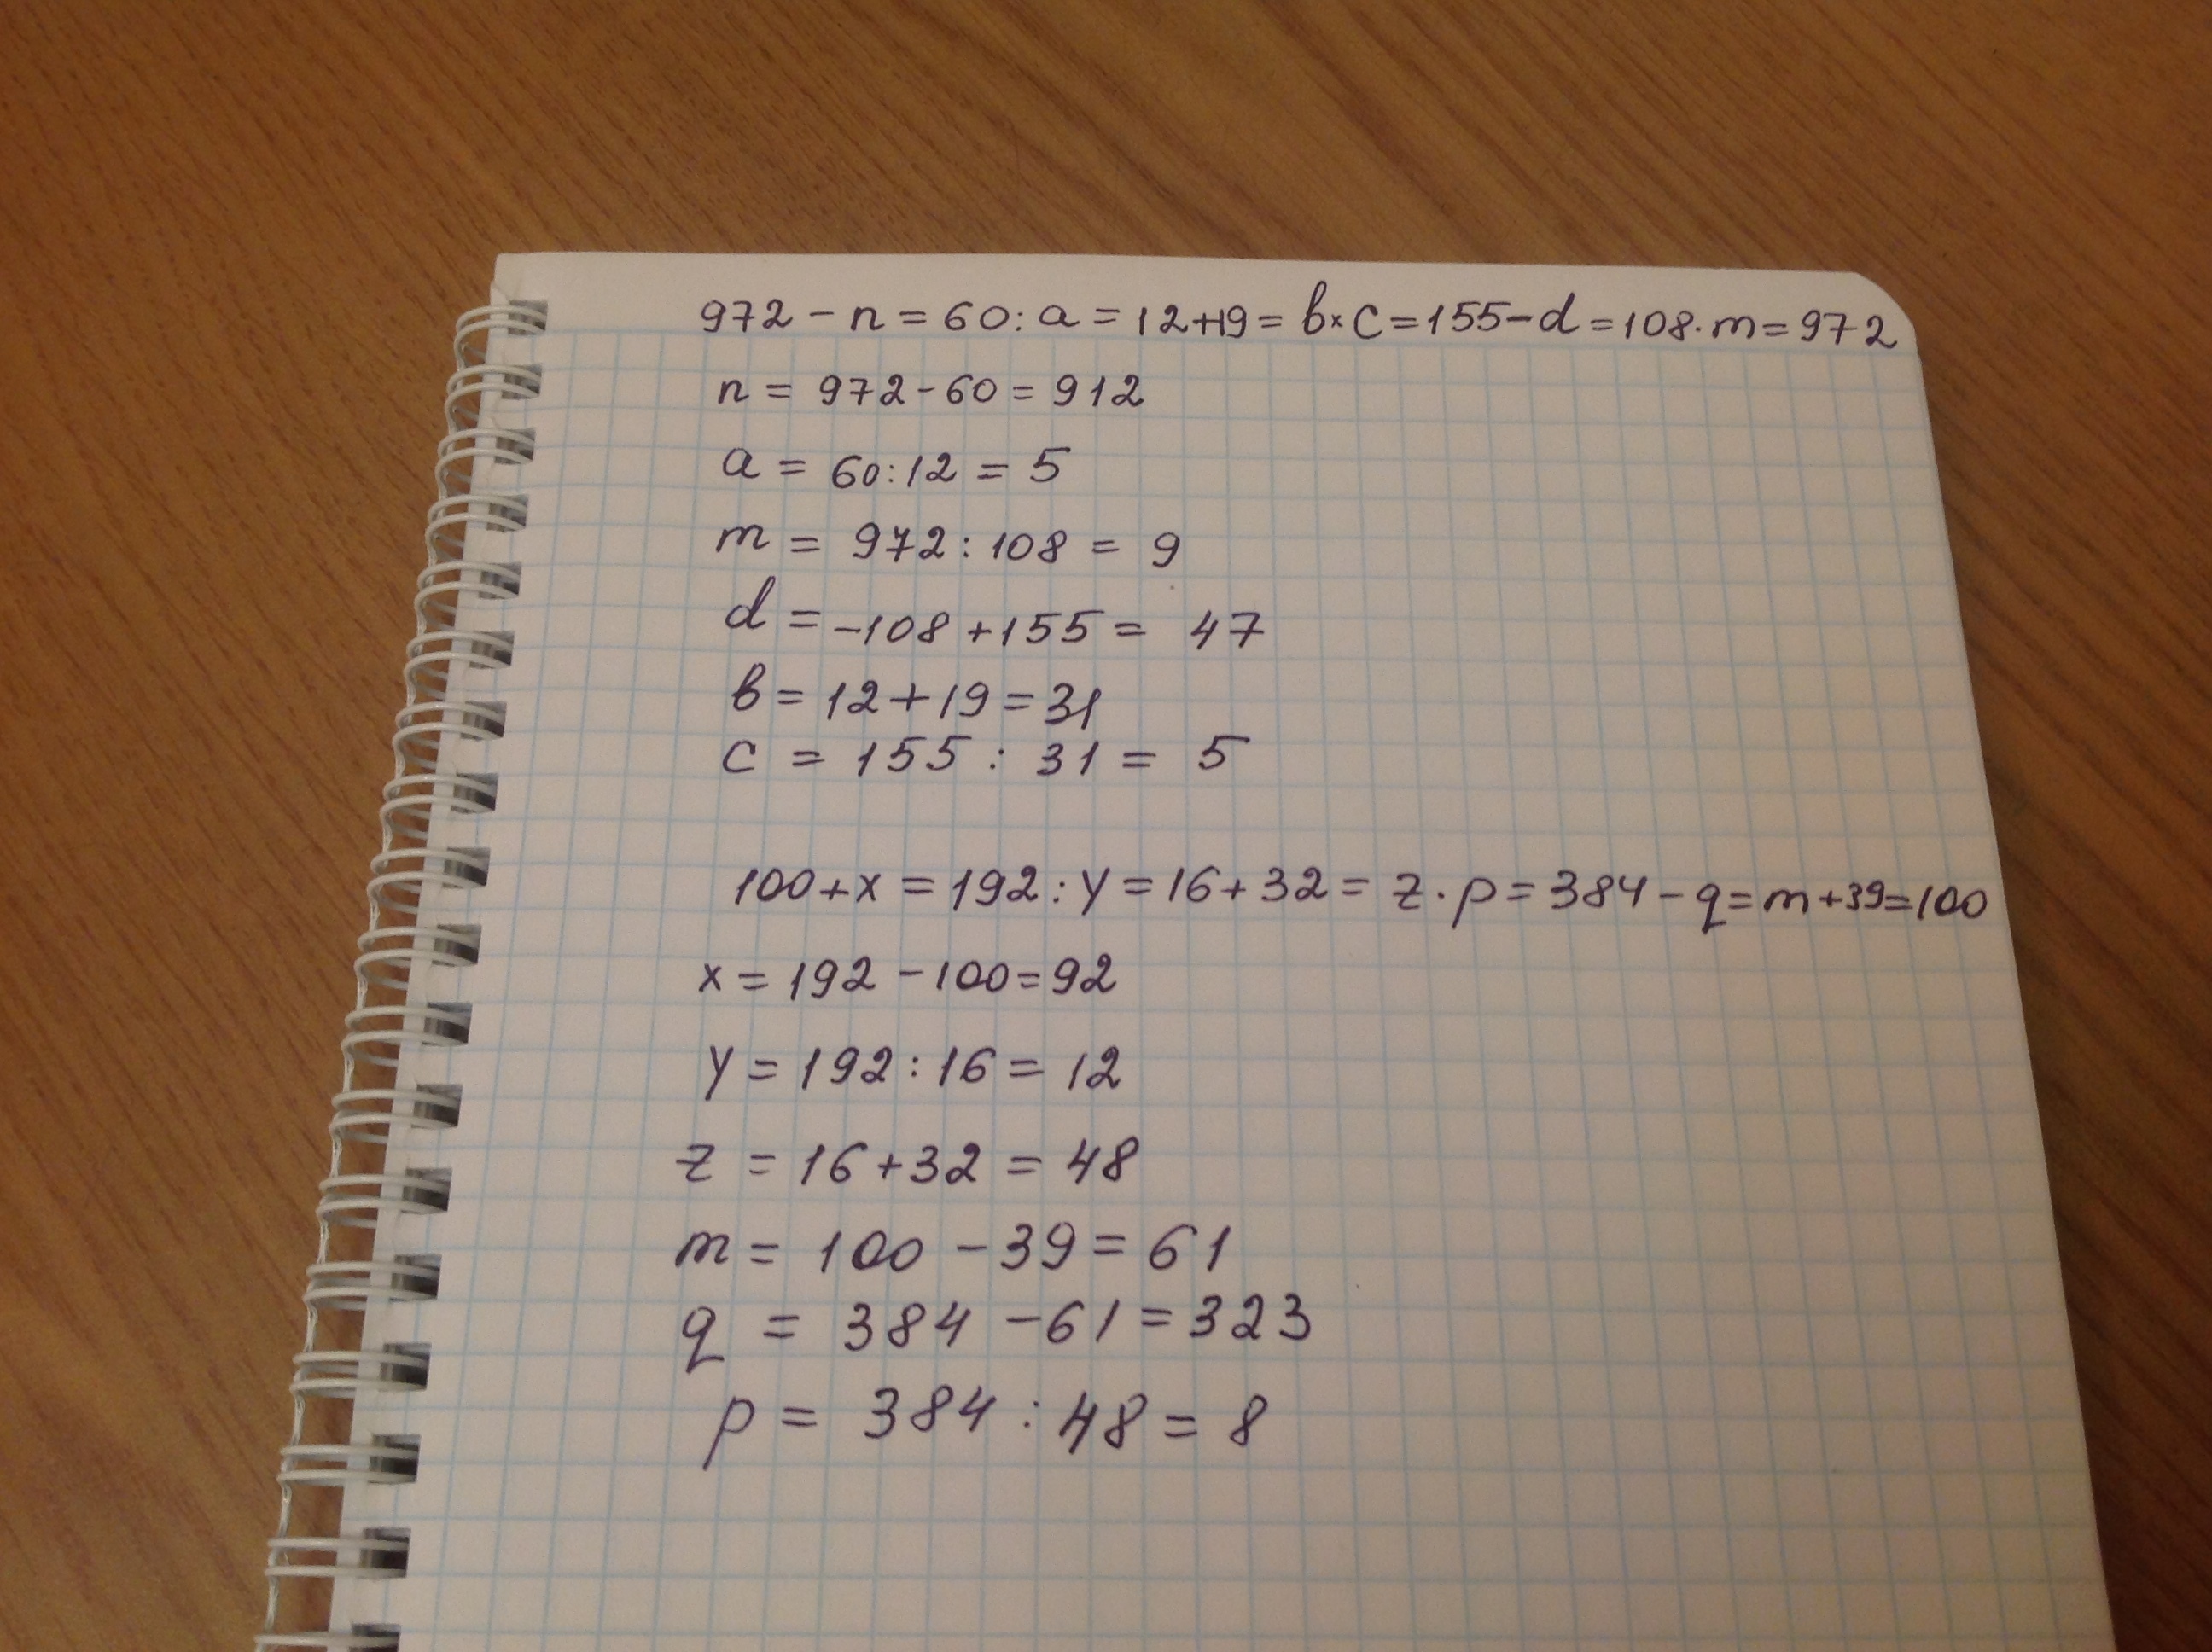 972 - n = 60 : a = 12+19 = b × c = 155 - d = 108 · m = 972
n = 972 - 60 = 912
a = 60 : 12 = 5
m = 972 : 108 = 9
d = -108 + 155 = 47
b = 12 + 19 = 31
c = 155 : 31 = 5
100 + x = 192 : y = 16 + 32 = z · p = 384 - q = m + 39 = 100
x = 192 - 100 = 92
y = 192 : 16 = 12
z = 16 + 32 = 48
m = 100 - 39 = 61
q = 384 - 61 = 323
p = 384 : 48 = 8